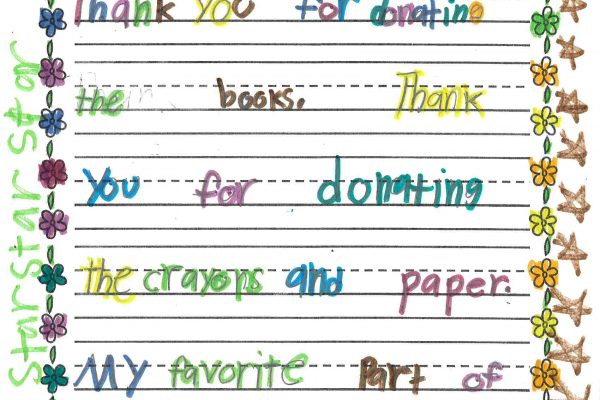 Thank you for donating
the books. Thank
you for donating
the crayons and paper.
My favorite part of
Star Star Star